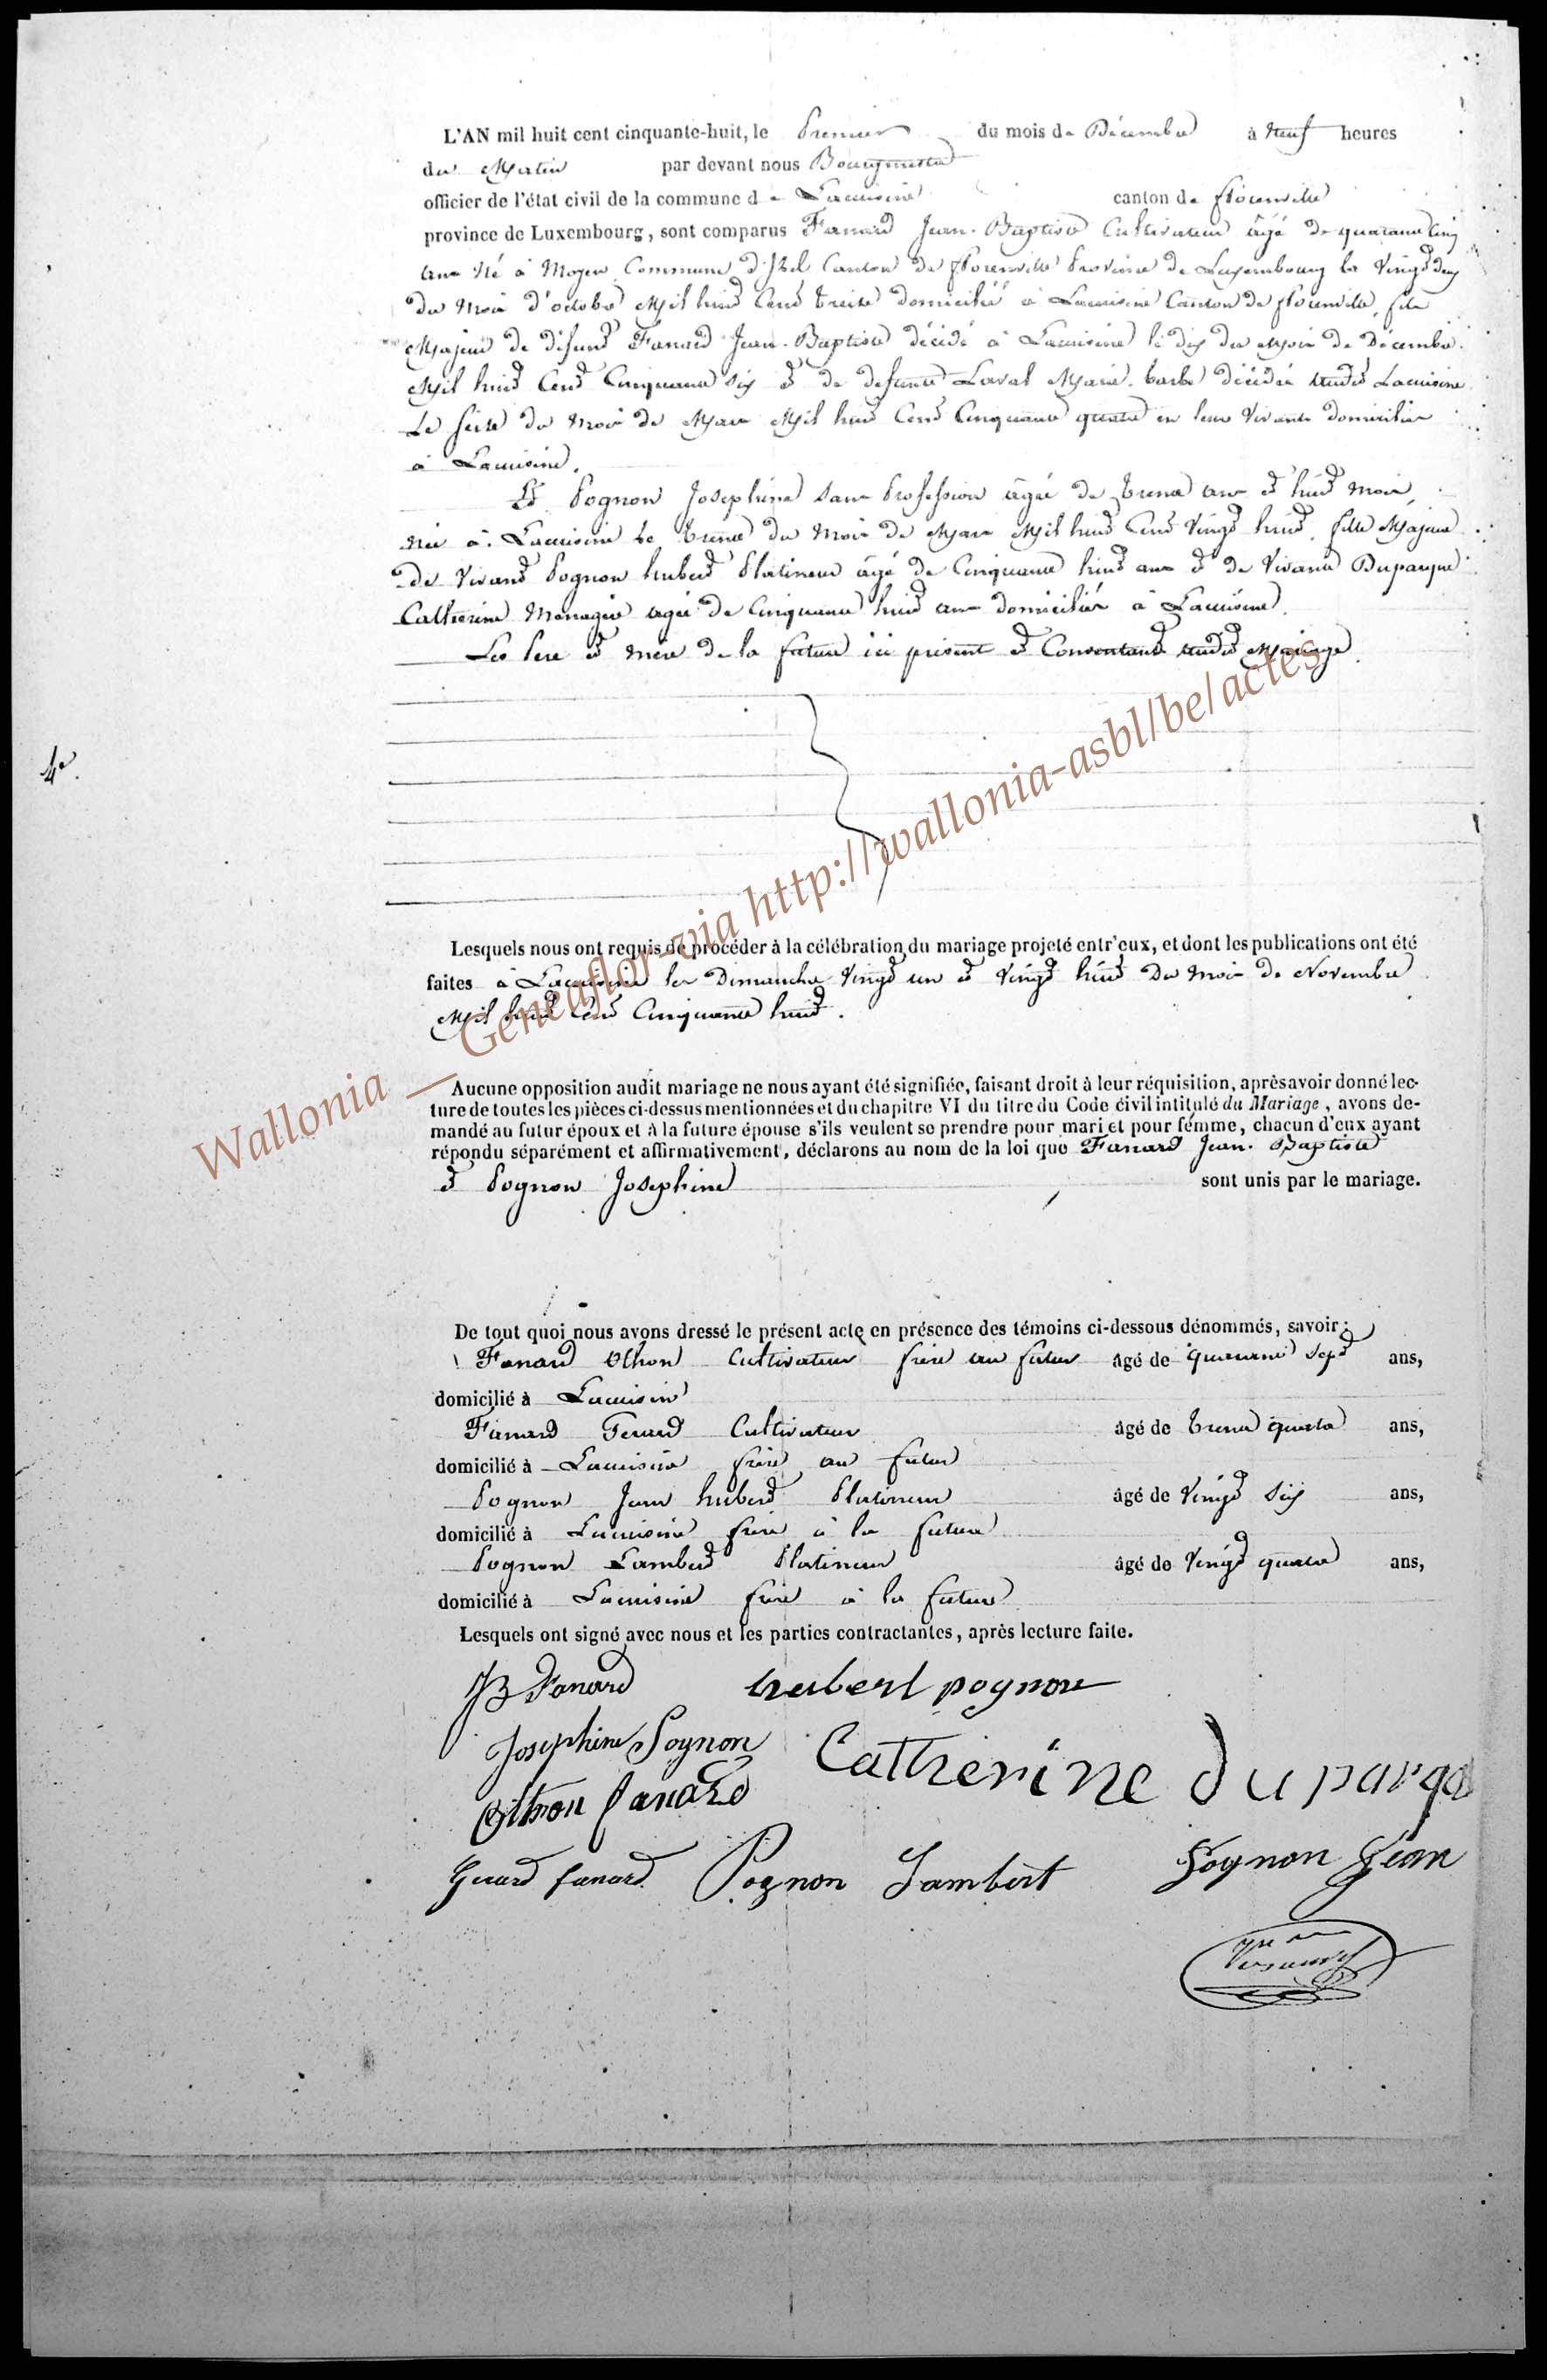 L'AN mil huit cent cinquante-huit, le Premier du mois de Décembre à Neuf heures
du Matin par devant nous Bourgmestre
officier de l'état civil de la commune de Lacuisine canton de florenville
province de Luxembourg, sont comparus Fanard Jean-Baptiste Cultivateur âgé de quarante cinq
ans Né à Moyen Commune d'Izel Canton de florenville Province de Luxembourg le Vingt deux
du Mois d'octobre Mil huit Cent treize domicilié à Lacuisine Canton de florenville, fils
Majeur de défunt Fanard Jean-Baptiste décédé à Lacuisine le dix du Mois de Décembre
Mil huit Cent Cinquante six et de defunte Laval Marie-barbe décédée audit Lacuisine
Le seize du Mois de Mars Mil huit Cent Cinquante quatre en leur Vivant domiciliés
à Lacuisine.
Et Pognon Josephine sans Profession âgée de trente ans et huit Mois,
Née à Lacuisine le trente du Mois de Mars Mil huit Cent Vingt huit, fille Majeure
de Vivant Pognon hubert Platineur âgé de Cinquante huit ans et de Vivante Duparque
Catherine Ménagère agée de Cinquante huit ans domiciliés à Lacuisine.
Les Pere et Mère de la future ici présent et Consentant audit Mariage.
4e.
Lesquels nous ont requis de procéder à la célébration du mariage projeté entr'eux, et dont les publications ont été
faites à Lacuisine les Dimanche Vingt un et Vingt huit Du Mois de Novembre
Mil huit Cent Cinquante huit.
Aucune opposition audit mariage ne nous ayant été signifiée, faisant droit à leur réquisition, après avoir donné lec-
ture de toutes les pièces ci-dessus mentionnées et du chapitre VI du titre du Code civil intitulé du Mariage, avons de-
mandé au futur époux et à la future épouse s'ils veulent se prendre pour mari et pour femme, chacun d'eux ayant
répondu séparément et affirmativement, déclarons au nom de la loi que Fanard Jean-Baptiste
et Pognon Josephine sont unis par le mariage.
De tout quoi nous avons dressé le présent acte en présence des témoins ci-dessous dénommés, savoir:
Fanard Othon Cultivateur frère au futur âgé de quarante sept ans,
domicilié à Lacuisine
Fanard Gerard Cultivateur âgé de trente quatre ans,
domicilié à Lacuisine frère au futur
Pognon Jean hubert Platineur âgé de Vingt six ans,
domicilié à Lacuisine frère à la future
Pognon Lambert Platineur âgé de Vingt quatre ans,
domicilié à Lacuisine frère à la future
Lesquels ont signé avec nous et les parties contractantes, après lecture faite.
JB Fanard hubert pognon
Josephine Pognon Catherine duparque
Othon fanard
Gerard fanard Pognon Lambert Pognon Jean
Wallonia _ Geneaflor via http://wallonia-asbl/be/actes